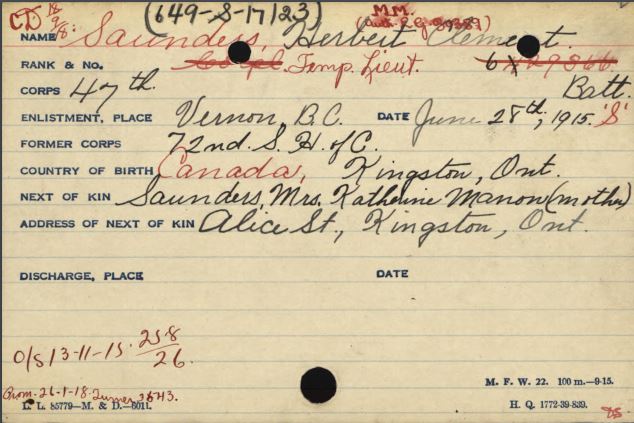 (649-S-17123) M.M.
CD 18/9/18.
NAME Saunders, Herbert Clement.
RANK & NO. Corpl. Temp. Lieut.
CORPS 47th. Batt.
ENLISTMENT, PLACE Vernon, B.C. DATE June 28th, 1915. 'S'
FORMER CORPS 72nd. S. H. of C.
COUNTRY OF BIRTH Canada, Kingston, Ont.
NEXT OF KIN Saunders, Mrs. Katherine Manon (mother)
ADDRESS OF NEXT OF KIN Alice St., Kingston, Ont.
DISCHARGE, PLACE DATE
O/S 13-11-15. 258/26.
Prom. 26-1-18.
M. F. W. 22. 100 m.—9-15.
L. L. 85779—M. & D.—6011. H. Q. 1772-39-839.